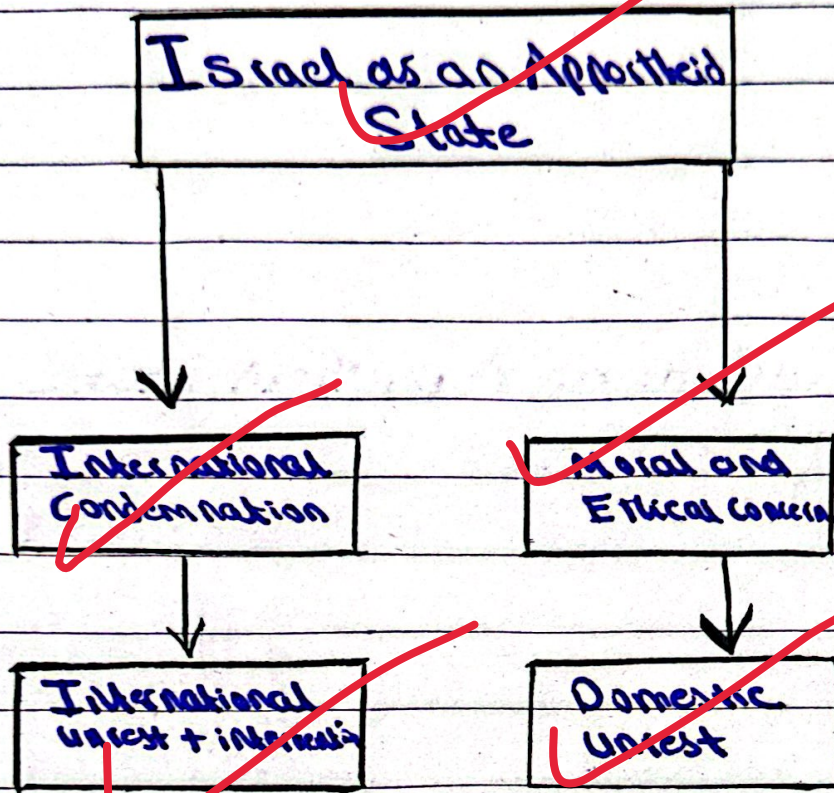 Israel as an Apportheid
State
International
Condemnation
Moral and
Ethical concern
International
unrest + interventi
Domestic
unrest